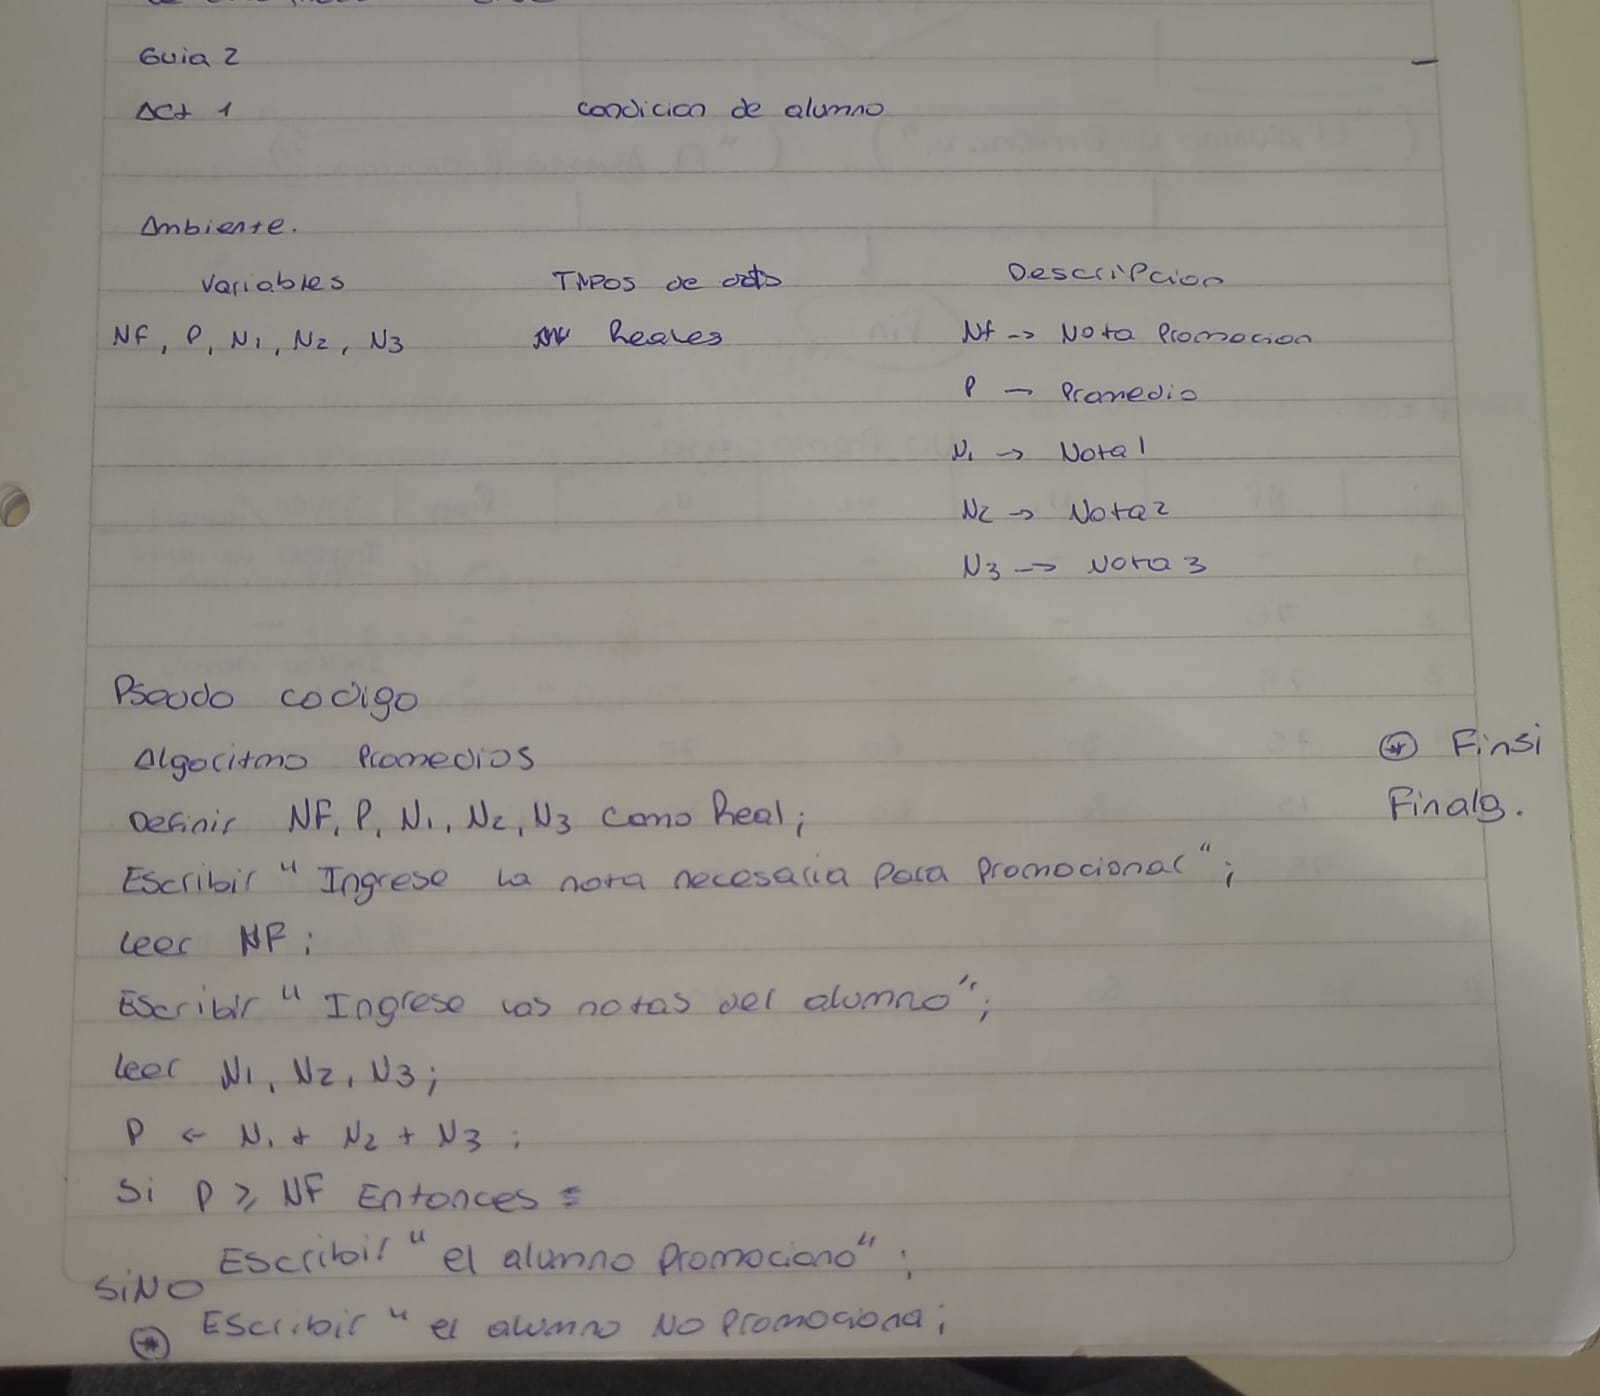 Guia 2
Act 1 condicion de alumno
Ambiente.
Variables Tipos de dato Descripcion
NF, P, N1, N2, N3 Reales Nf -> Nota Promocion
P — Promedio
N1 -> Nota 1
N2 -> Nota 2
N3 -> Nota 3
Pseudo codigo
Algoritmo Promedios
Definir NF, P, N1, N2, N3 Como Real;
Escribir " Ingrese la nota necesaria para promocional";
Leer NF;
Escribir " Ingrese las notas del alumno";
Leer N1, N2, N3;
P <- N1 + N2 + N3;
Si P ≥ NF Entonces
Escribir " el alumno Promociono";
SiNO
Escribir " el alumno NO Promociona;
(*)
(*) Finsi
Finalg.